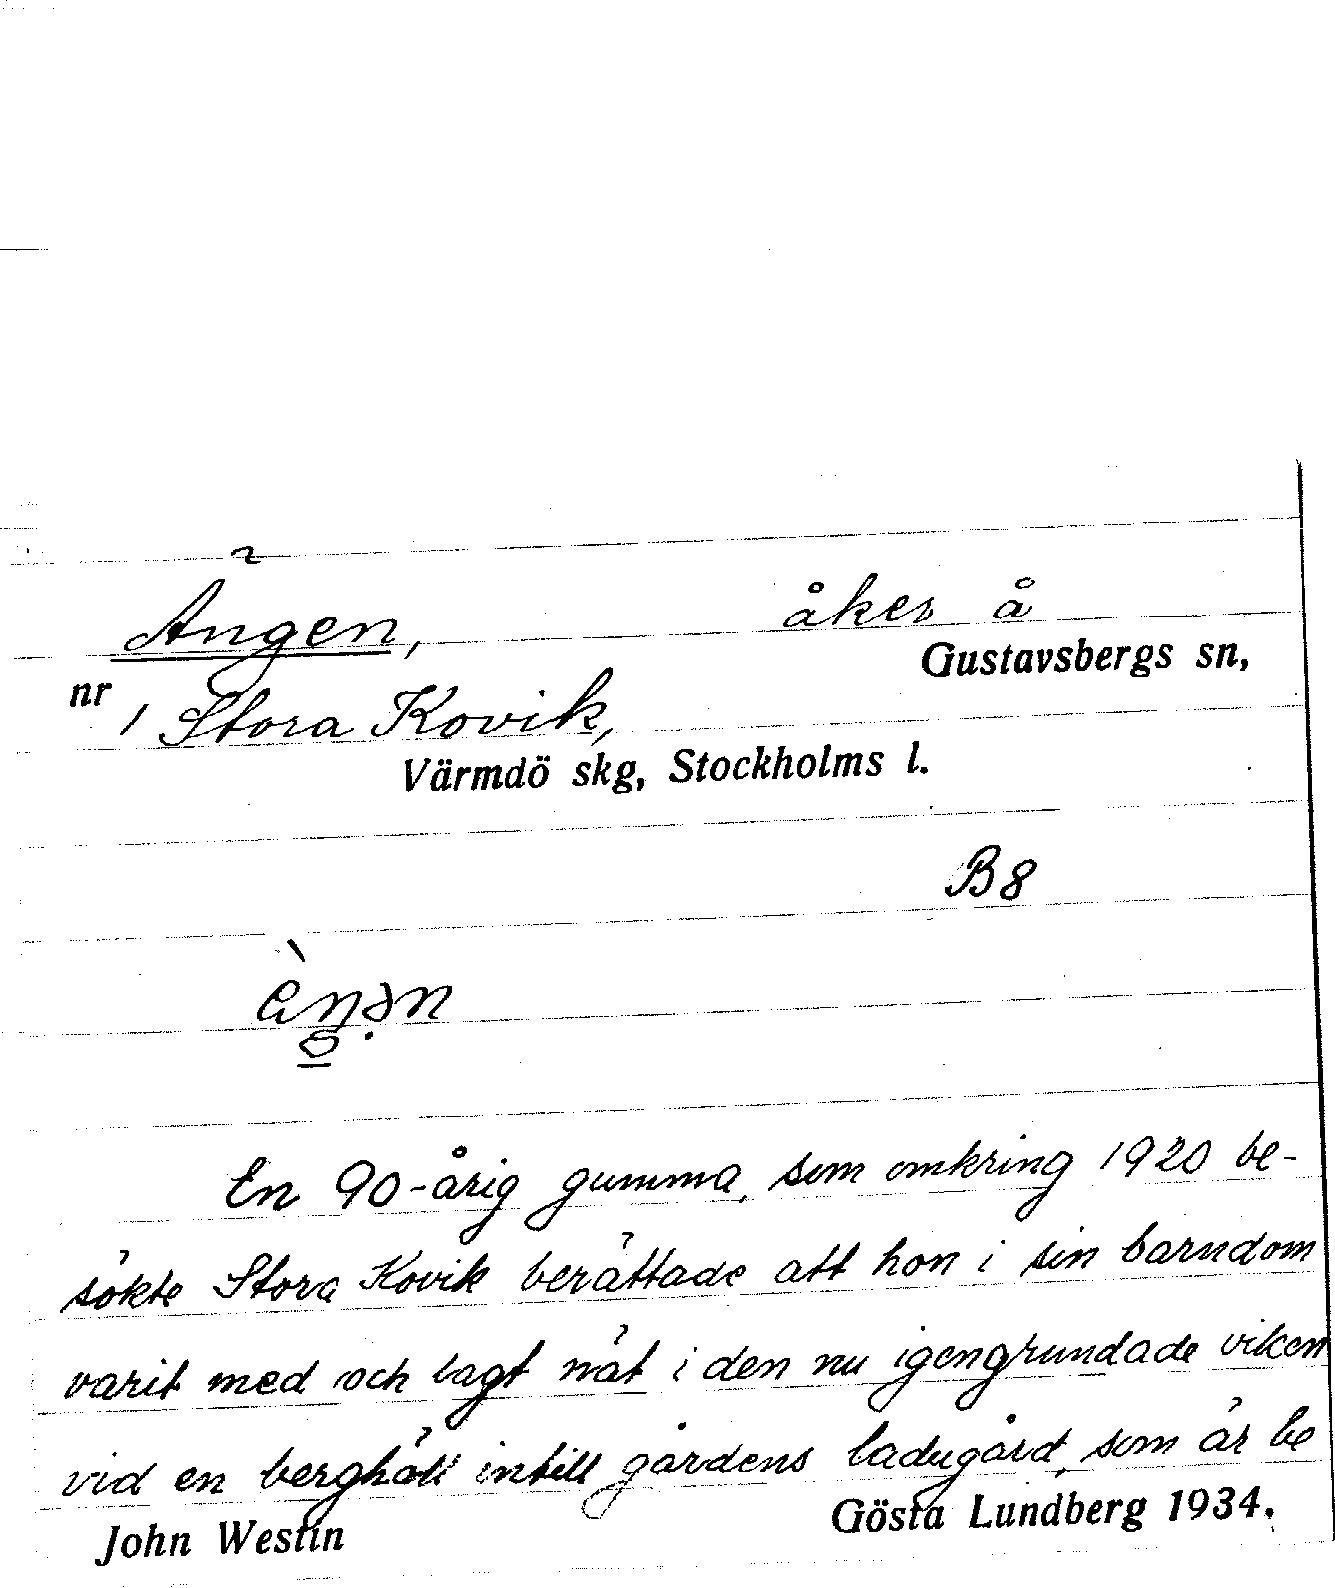 Ängen, åker å
Gustavsbergs sn,
nr 1 Stora Kovik,
Värmdö skg, Stockholms l.
B 8
En 90-årig gumma, som omkring 1920 be-
sökte Stora Kovik berättade att hon i sin barndom
varit med och lagt nät i den nu igengrundade viken
vid en berghäll intill gårdens ladugård, som är be
John Westin Gösta Lundberg 1934.